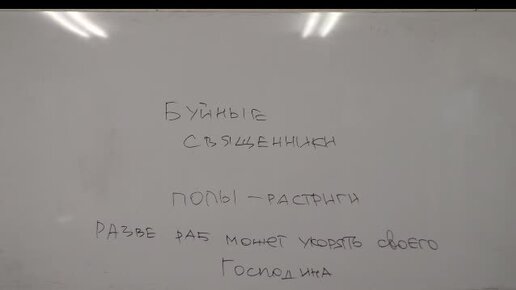 Буйные
священники
попы – растриги
разве раб может укорять своего
Господина